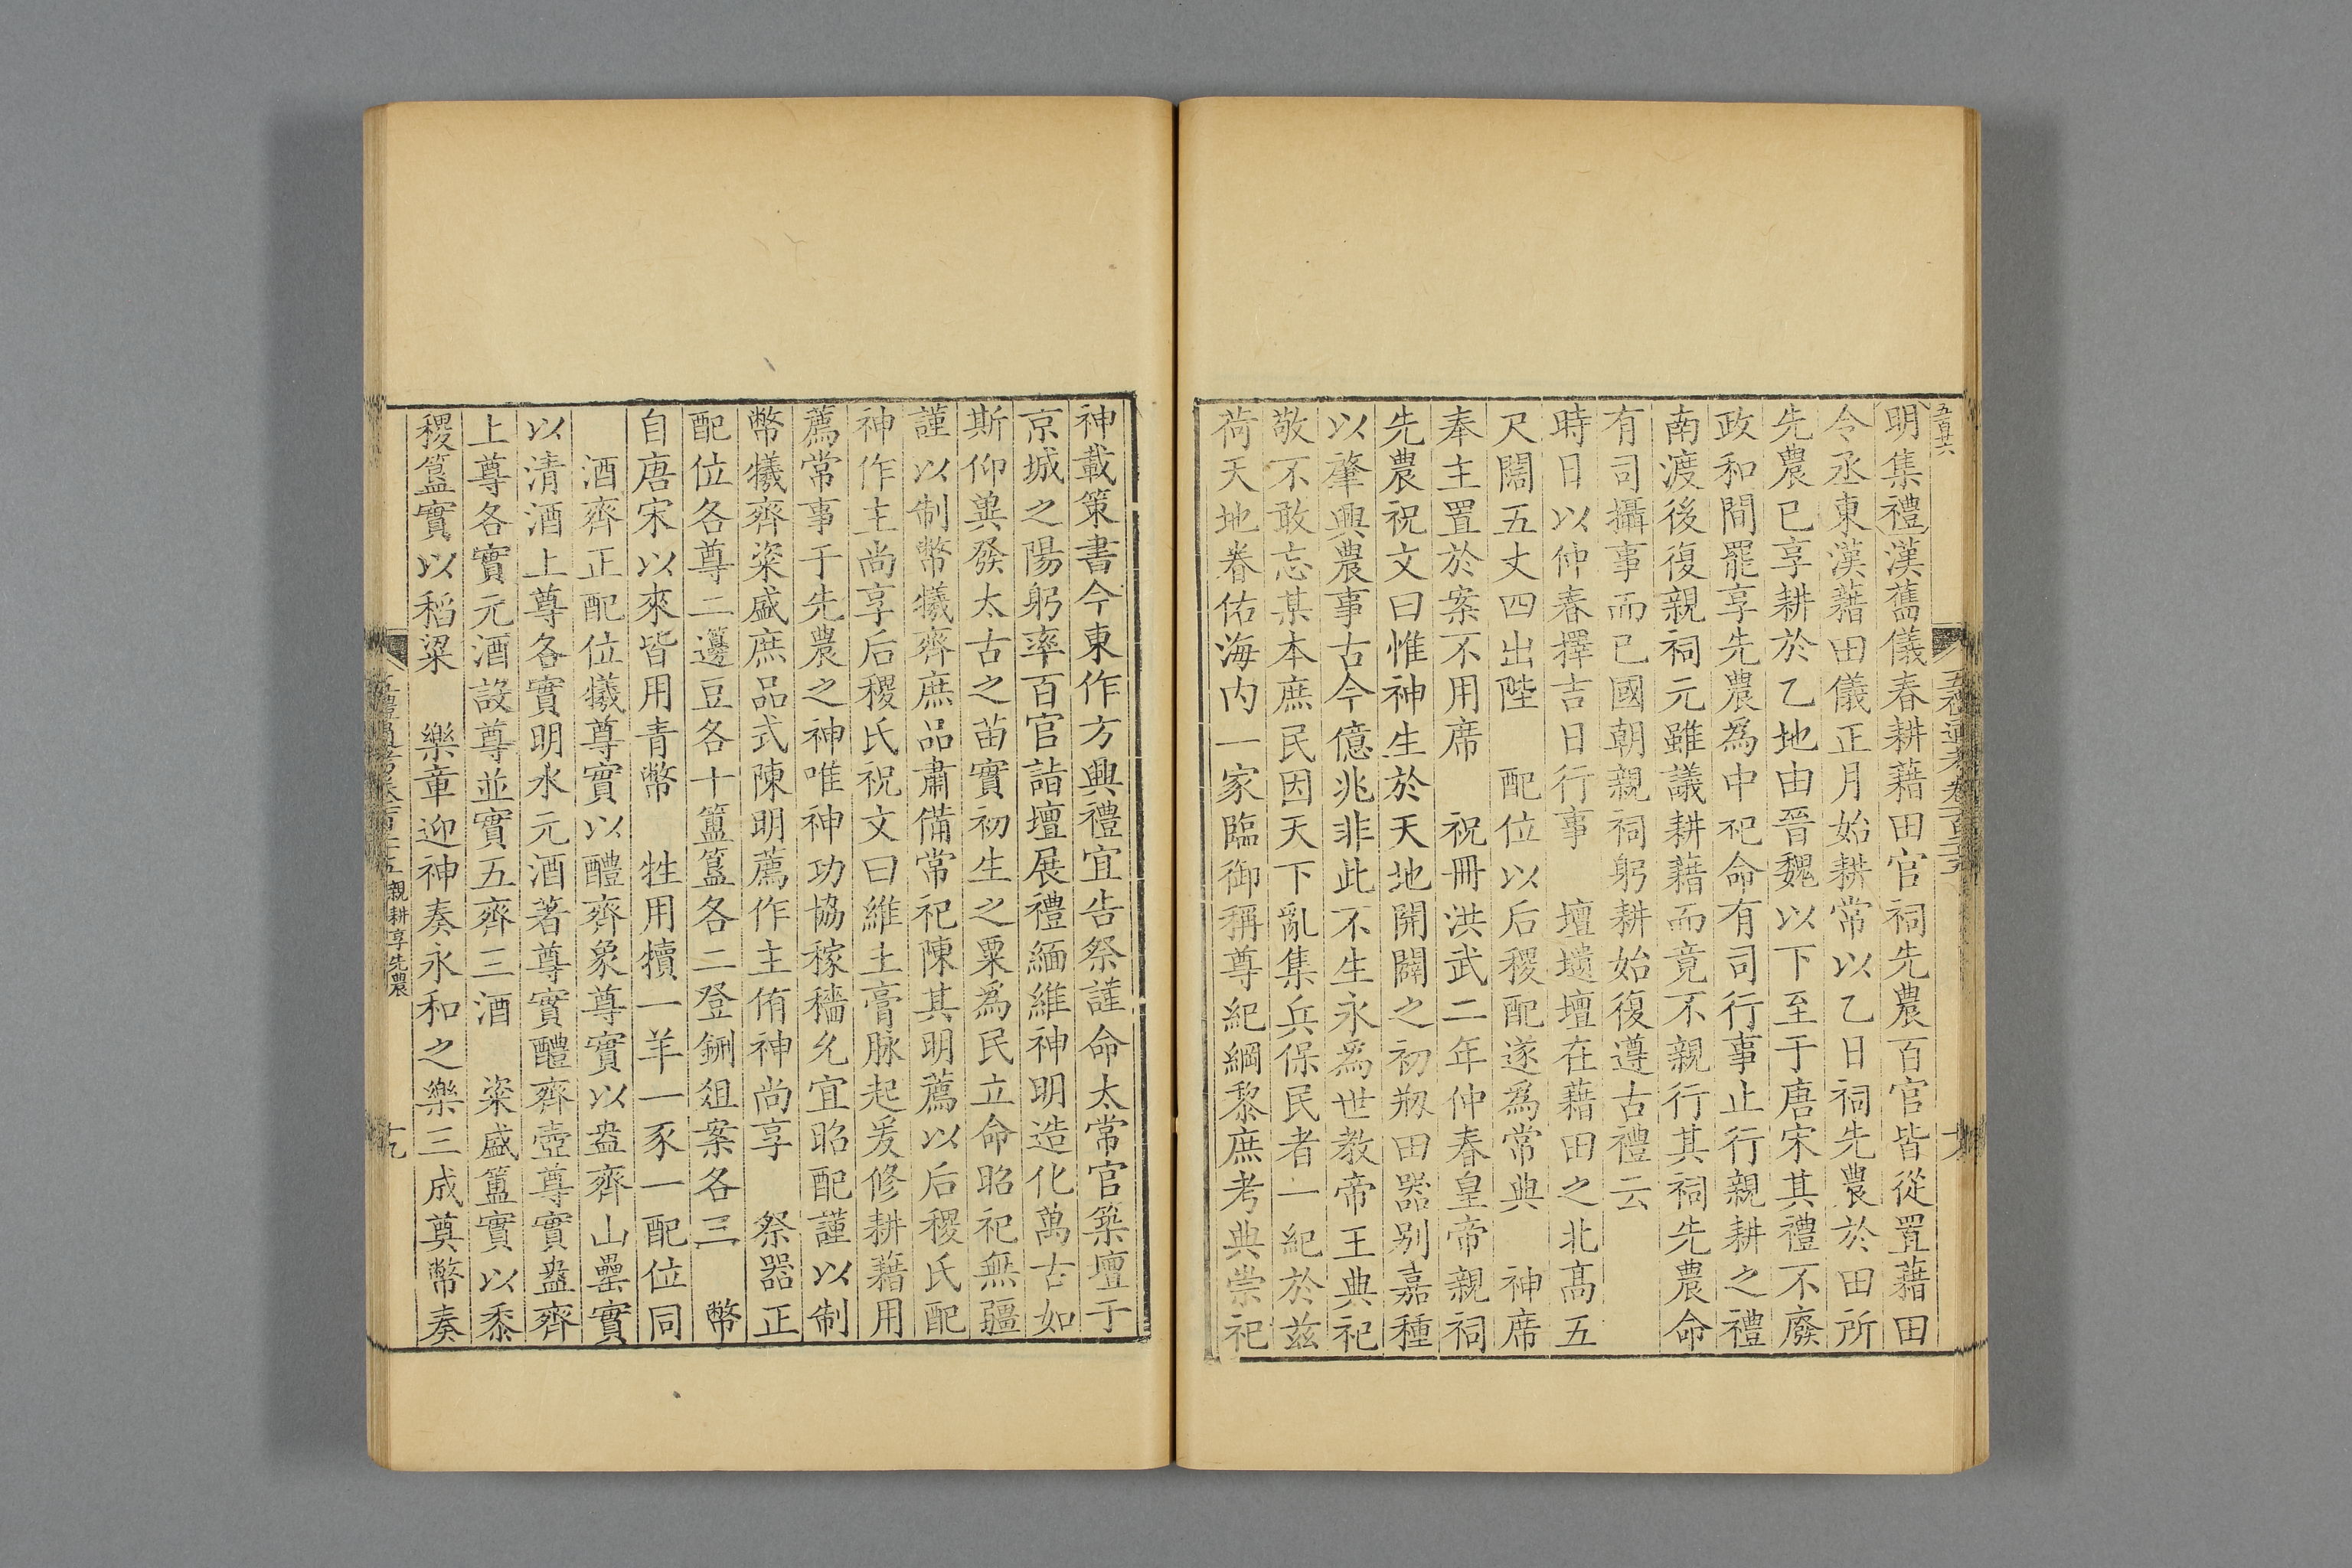 明集禮漢舊儀春耕藉田官祠先農百官皆從置藉田
令丞東漢藉田儀正月始耕常以乙日祠先農於田所
先農已享耕於乙地由晉魏以下至于唐宋其禮不廢
政和間罷享先農爲中祀命有司行事止行親耕之禮
南渡後復親祠元雖議耕藉而竟不親行其祠先農命
有司攝事而已國朝親祠躬耕始復遵古禮云
時日以仲春擇吉日行事 壇壝壇在藉田之北高五
尺闊五丈四出陛 配位以后稷配遂爲常典 神席
奉主置於案不用席 祝冊洪武二年仲春皇帝親祠
先農祝文曰惟神生於天地開闢之初剏田器别嘉種
以肇興農事古今億兆非此不生永爲世教帝王典祀
敬不敢忘某本庶民因天下亂集兵保民者一紀於茲
荷天地眷佑海内一家臨御稱尊紀綱黎庶考典崇祀
神載策書今東作方興禮宜告祭謹命太常官築壇于
京城之陽躬率百官詣壇展禮緬維神明造化萬古如
斯仰冀發太古之苗實初生之粟爲民立命昭祀無疆
謹以制幣犧齊庶品肅備常祀陳其明薦以后稷氏配
神作主尚享后稷氏祝文曰維土膏脉起爰修耕藉用
薦常事于先農之神唯神功協稼穡允宜昭配謹以制
幣犧齊粢盛庶品式陳明薦作主侑神尚享 祭器正
配位各尊二籩豆各十簠簋各二登鉶俎案各三 幣
自唐宋以來皆用青幣 牲用犢一羊一豕一配位同
酒齊正配位犧尊實以醴齊象尊實以盎齊山罍實
以清酒上尊各實明水元酒著尊實醴齊壺尊實盎齊
上尊各實元酒設尊並實五齊三酒 粢盛簠實以黍
稷簋實以稻粱 樂章迎神奏永和之樂三成奠幣奏
親耕享先農